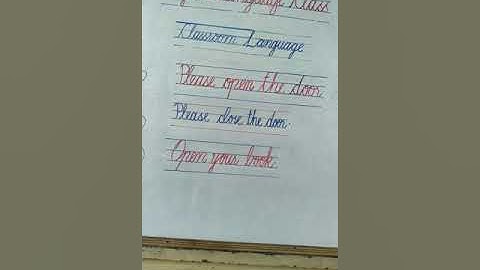 Language Class
Classroom Language
Please open the door.
Please close the door.
Open your book.